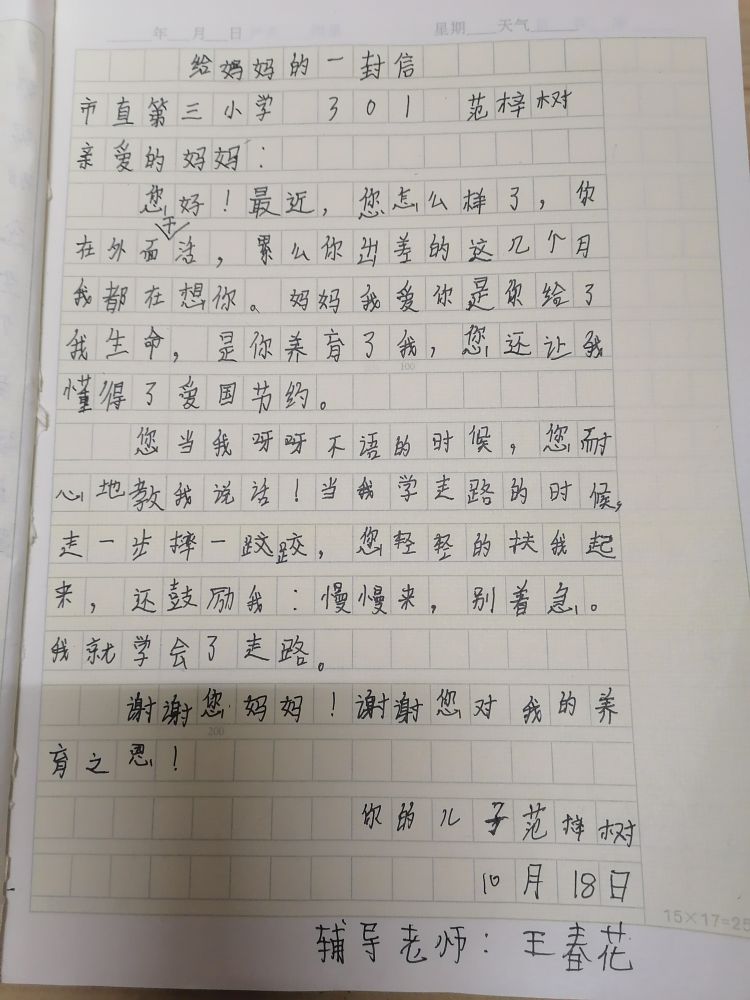 年 月 日 星期 天气
给妈妈的一封信
市直第三小学 301 范梓树
亲爱的妈妈：
您好！最近，您怎么样了，你
在外面干活，累么你出差的这几个月
我都在想你。妈妈我爱你是你给了
我生命，是你养育了我，您还让我
100
懂得了爱国节约。
您当我呀呀不语的时候，您耐
心地教我说话！当我学走路的时候，
走一步摔一跤跤，您轻轻的扶我起
来，还鼓励我：慢慢来，别着急。
我就学会了走路。
谢谢您妈妈！谢谢您对我的养
200
育之恩！
你的儿子范梓树
10月18日
15×17=25
辅导老师：王春花